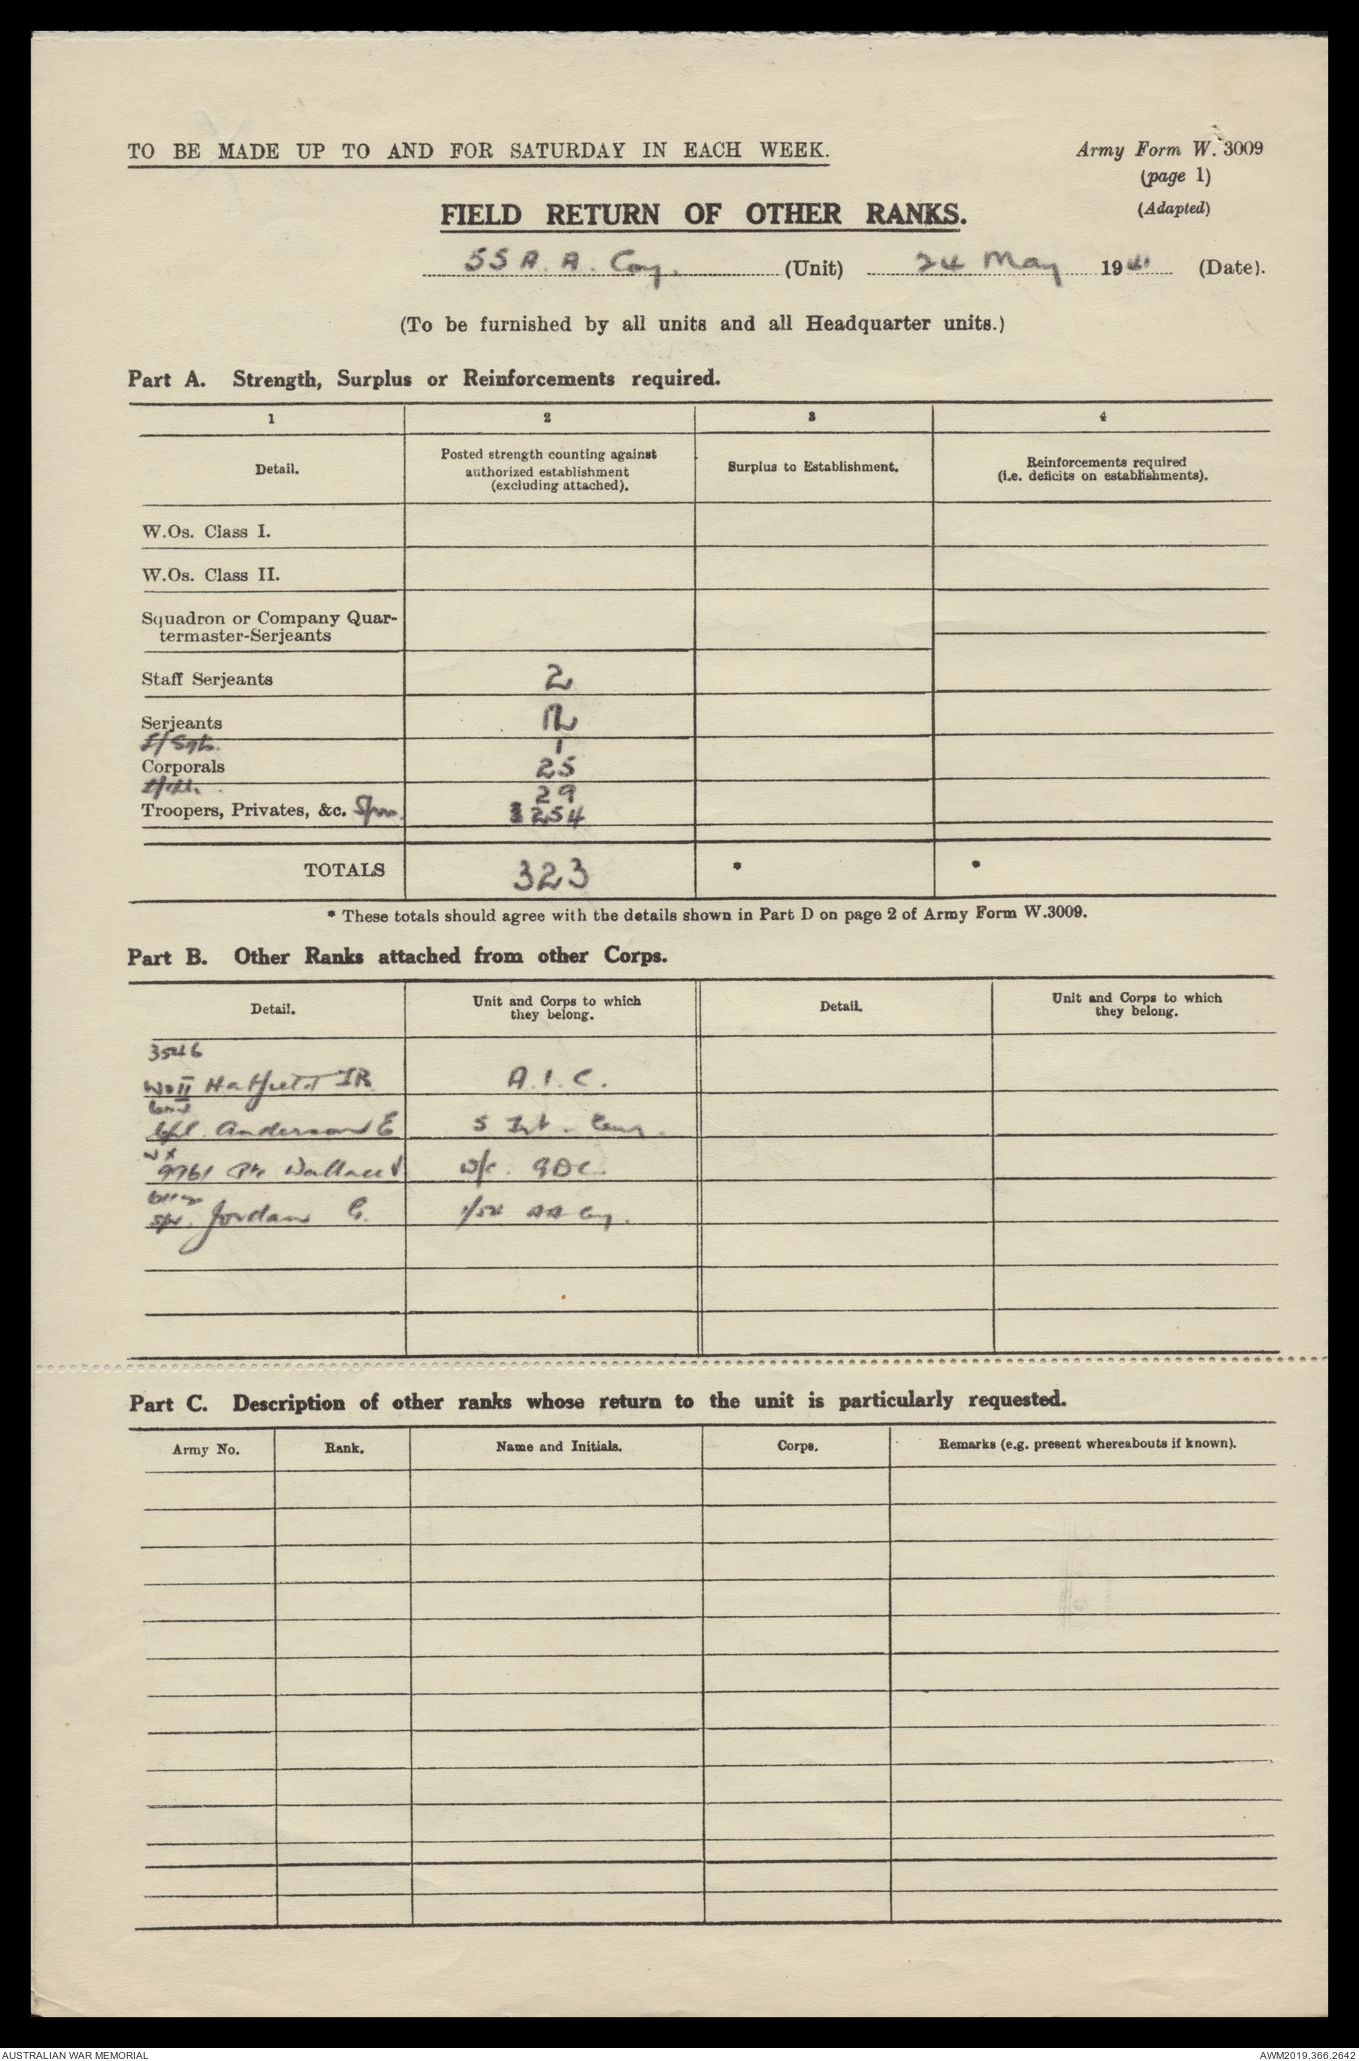 TO BE MADE UP TO AND FOR SATURDAY IN EACH WEEK.
Army Form W. 3009
(page 1)
(Adapted)
FIELD RETURN OF OTHER RANKS.
55 A. A. Coy. (Unit) 24 May 1941 (Date).
(To be furnished by all units and all Headquarter units.)
Part A. Strength, Surplus or Reinforcements required.
1 2 3 4
Detail.
Posted strength counting against
authorized establishment
(excluding attached).
Surplus to Establishment.
Reinforcements required
(i.e. deficits on establishments).
W.Os. Class I.
W.Os. Class II.
Squadron or Company Quar-
termaster-Serjeants
Staff Serjeants 2
Serjeants 12
L/Sgts. 1
Corporals 25
29
Troopers, Privates, &c. Sprs. 254
TOTALS 323 * *
* These totals should agree with the details shown in Part D on page 2 of Army Form W.3009.
Part B. Other Ranks attached from other Corps.
Detail.
Unit and Corps to which
they belong.
Detail.
Unit and Corps to which
they belong.
3546
WOII Hatfield IR A.I.C.
Cpl. Anderson E
9761 Pte Wallace
Spr. Jordan G.
Part C. Description of other ranks whose return to the unit is particularly requested.
Army No. Rank. Name and Initials. Corps. Remarks (e.g. present whereabouts if known).
AUSTRALIAN WAR MEMORIAL
AWM2019.366.2642